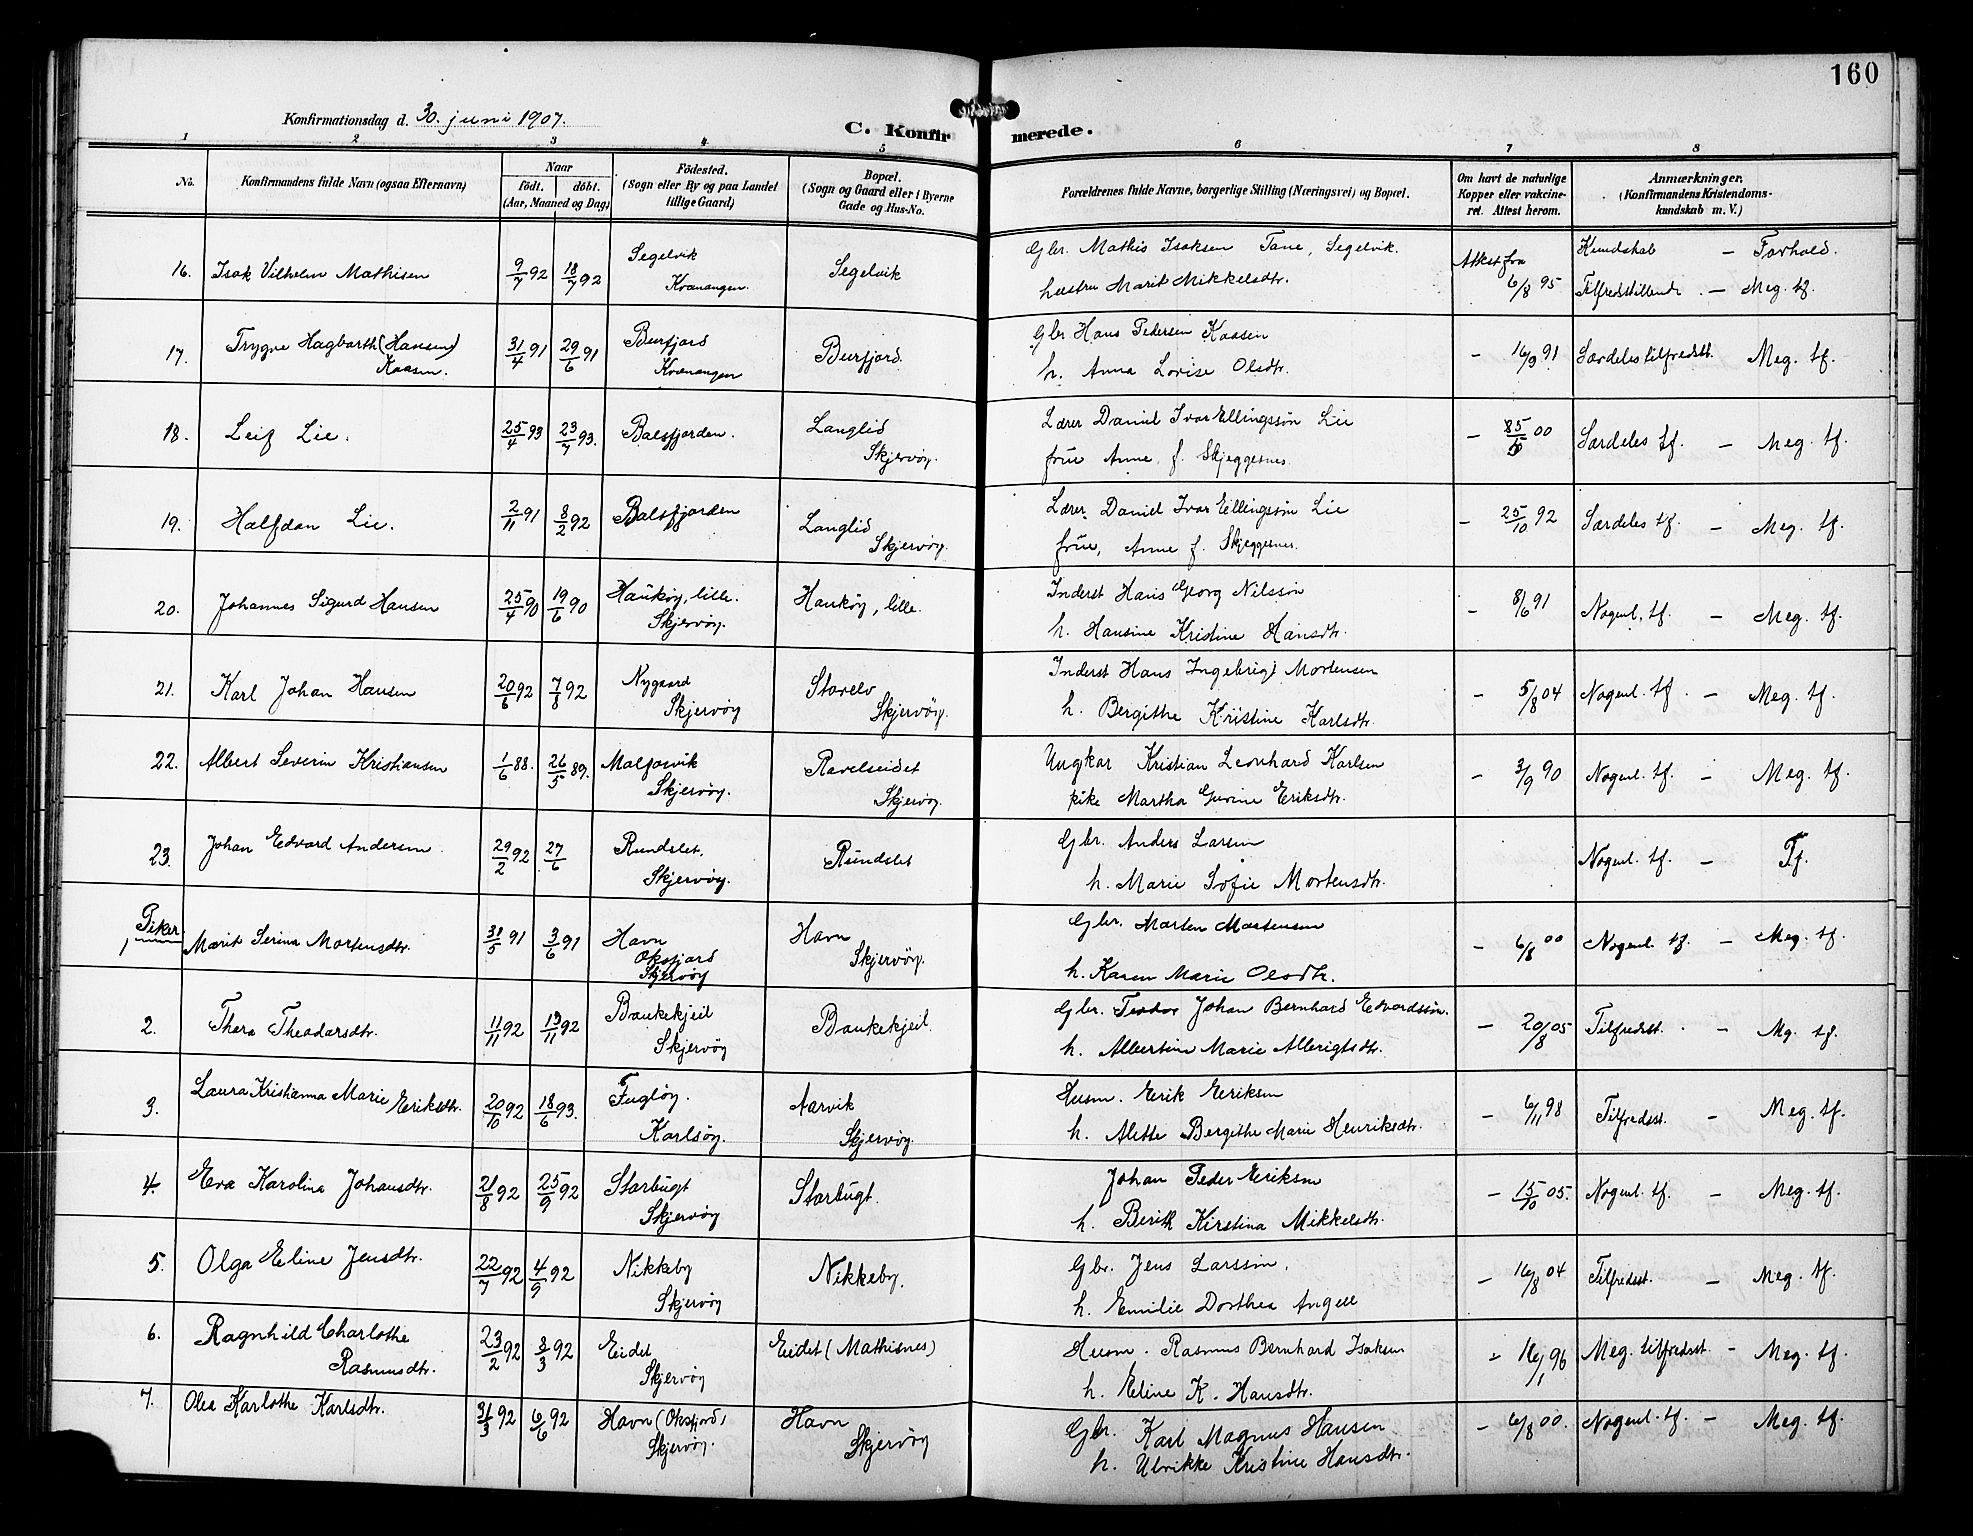 160
Konfirmationsdag d. 30. juni 1907.
C. Konfirmerede.
1 2 3 4 5 6 7 8
No.
Konfirmandens fulde Navn (ogsaa Efternavn)
Naar
födt. döbt.
(Aar, Maaned og Dag)
Födested.
(Sogn eller By og paa Landet
tillige Gaard)
Bopæl.
(Sogn og Gaard eller i Byerne
Gade og Hus-No.
Forældrenes fulde Navne, borgerlige Stilling (Næringsvei) og Bopæl.
Om havt de naturlige
Kopper eller vakcine-
ret. Attest herom.
Anmærkninger.
(Konfirmandens Kristendoms-
kundskab m. V.)
16. Isak Vilhelm Mathisen 9/7 92 18/7 92 Segelvik Kvænangen. Segelvik
Gbr. Mathis Isaksen Tane, Segelvik.
hustru Marit Mikkelsdtr.
Attest fra 6/8 95
Kundskab – Forhold.
Tilfredsstillende. – Meg. tf.
17. Trygve Hagbarth (Hansen) Kaasen. 31/4 91 29/6 91 Burfjord Kvænangen Burfjord.
Gbr Hans Pedersen Kaasen
h. Anna Lovise Olsdtr.
– 16/9 91 Særdeles tilfredsst. Meg. tf.
18. Leif Lie. 25/4 93 23/7 93. Balsfjorden. Langlid Skjervöy.
Lærer Daniel Ivar Ellingssön Lie
frue Anne, f. Skjeggesnes.
– 00 Særdeles tf. – Meg. tf.
19. Halfdan Lie. 2/11 91 8/2 92 Balsfjorden Langlid Skjervöy.
Lærer. Daniel Ivar Ellingssön Lie
frue, Anne f. Skjeggesnes.
– 25/10 92 Særdeles tf. – Meg. tf.
20. Johannes Sigurd Hansen 25/4 90 19/6 90 Haukøy, lille. Skjervöy. Haukøy, lille.
Inderst Hans Georg Nilssön
h. Hansine Kristine Hansdtr.
– 8/6 91 Nogenl. tf. – Meg. tf.
21. Karl Johan Hansen 20/6 92 7/8 92 Nygaard Skjervöy Storelv Skjervöy.
Inderst Hans Ingebrigt Mortensen
h. Bergithe Kristine Karlsdtr.
– 5/8 04 Nogenl. tf. – Meg. tf.
22. Albert Severin Kristiansen 1/6 88. 26/5 89. Malfosvik Skjervöy. Ravelseidet Skjervöy.
Ungkar Kristian Leonhard Karlsen
pike Martha Gurine Eriksdtr.
– 3/9 90 Nogenl. tf. – Meg. tf.
23. Johan Edvard Andersen. 29/2 92 27/6 Rundslet, Skjervöy. Rundslet
Gbr. Anders Larsen
h. Marie Sofie Mortensdtr.
Nogenl. tf. – Tf.
Piker
1 Marit Serina Mortensdtr. 31/5 91 3/6 91 Havn Oksfjord Skjervöy Havn Skjervöy.
Gbr. Morten Mortensen
h. Karen Marie Olsdtr.
– 6/8 00 Nogenl. tf. – Meg. tf.
2. Thera Theodorsdtr. 11/11 92 13/11 92 Baukekjeil Skjervöy Baukekjeil
Gbr. Teodor Johan Bernhard Edvardssön.
h. Albertine Marie Albrigtsdtr.
– 20/8 05 Tilfredsst. – Mg. tf.
3. Laura Kristianna Marie Eriksdtr. 20/10 92 18/6 93. Fugløy. Karlsöy. Aarvik Skjervöy.
Husm. Erik Eriksen
h. Alette Bergithe Marie Henriksdtr.
– 6/11 98 Tilfredsst. – Meg. tf.
4. Eva Karolina Johansdtr. 21/8 92 25/9 92 Storbugt Skjervöy Storbugt.
Johan Peder Eriksen
h. Berith Kirstina Mikkelsdtr.
– 15/10 05. Nogenl. tf. – Meg. tf.
5. Olga Eline Jensdtr. 22/7 92 4/9 92 Nikkeby Skjervöy Nikkeby.
Gbr. Jens Larssön.
h. Emilie Dorthea Angell
– 16/8 04 Tilfredsst. – Meg. tf.
6. Ragnhild Charlothe Rasmusdtr. 23/2 92 92 Eidet Skjervöy Eidet (Mathisnes)
Husm. Rasmus Bernhard Isaksen
h. Eline K. Hansdtr.
– 16/1 96 Meg. tilfredsst. – Meg. tf.
7. Olea Karlothe Karlsdtr. 31/3 92 6/6 92 Havn (Oksfjord) Skjervöy. Havn Skjervöy
Gbr. Karl Magnus Hansen
h. Ulrikke Kristine Hansdtr.
– 6/8 00. Nogenl. tf. – Meg. tf.